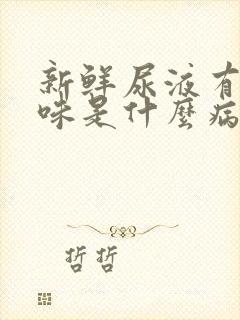 新鲜尿液有
味是什麼病
哲哲